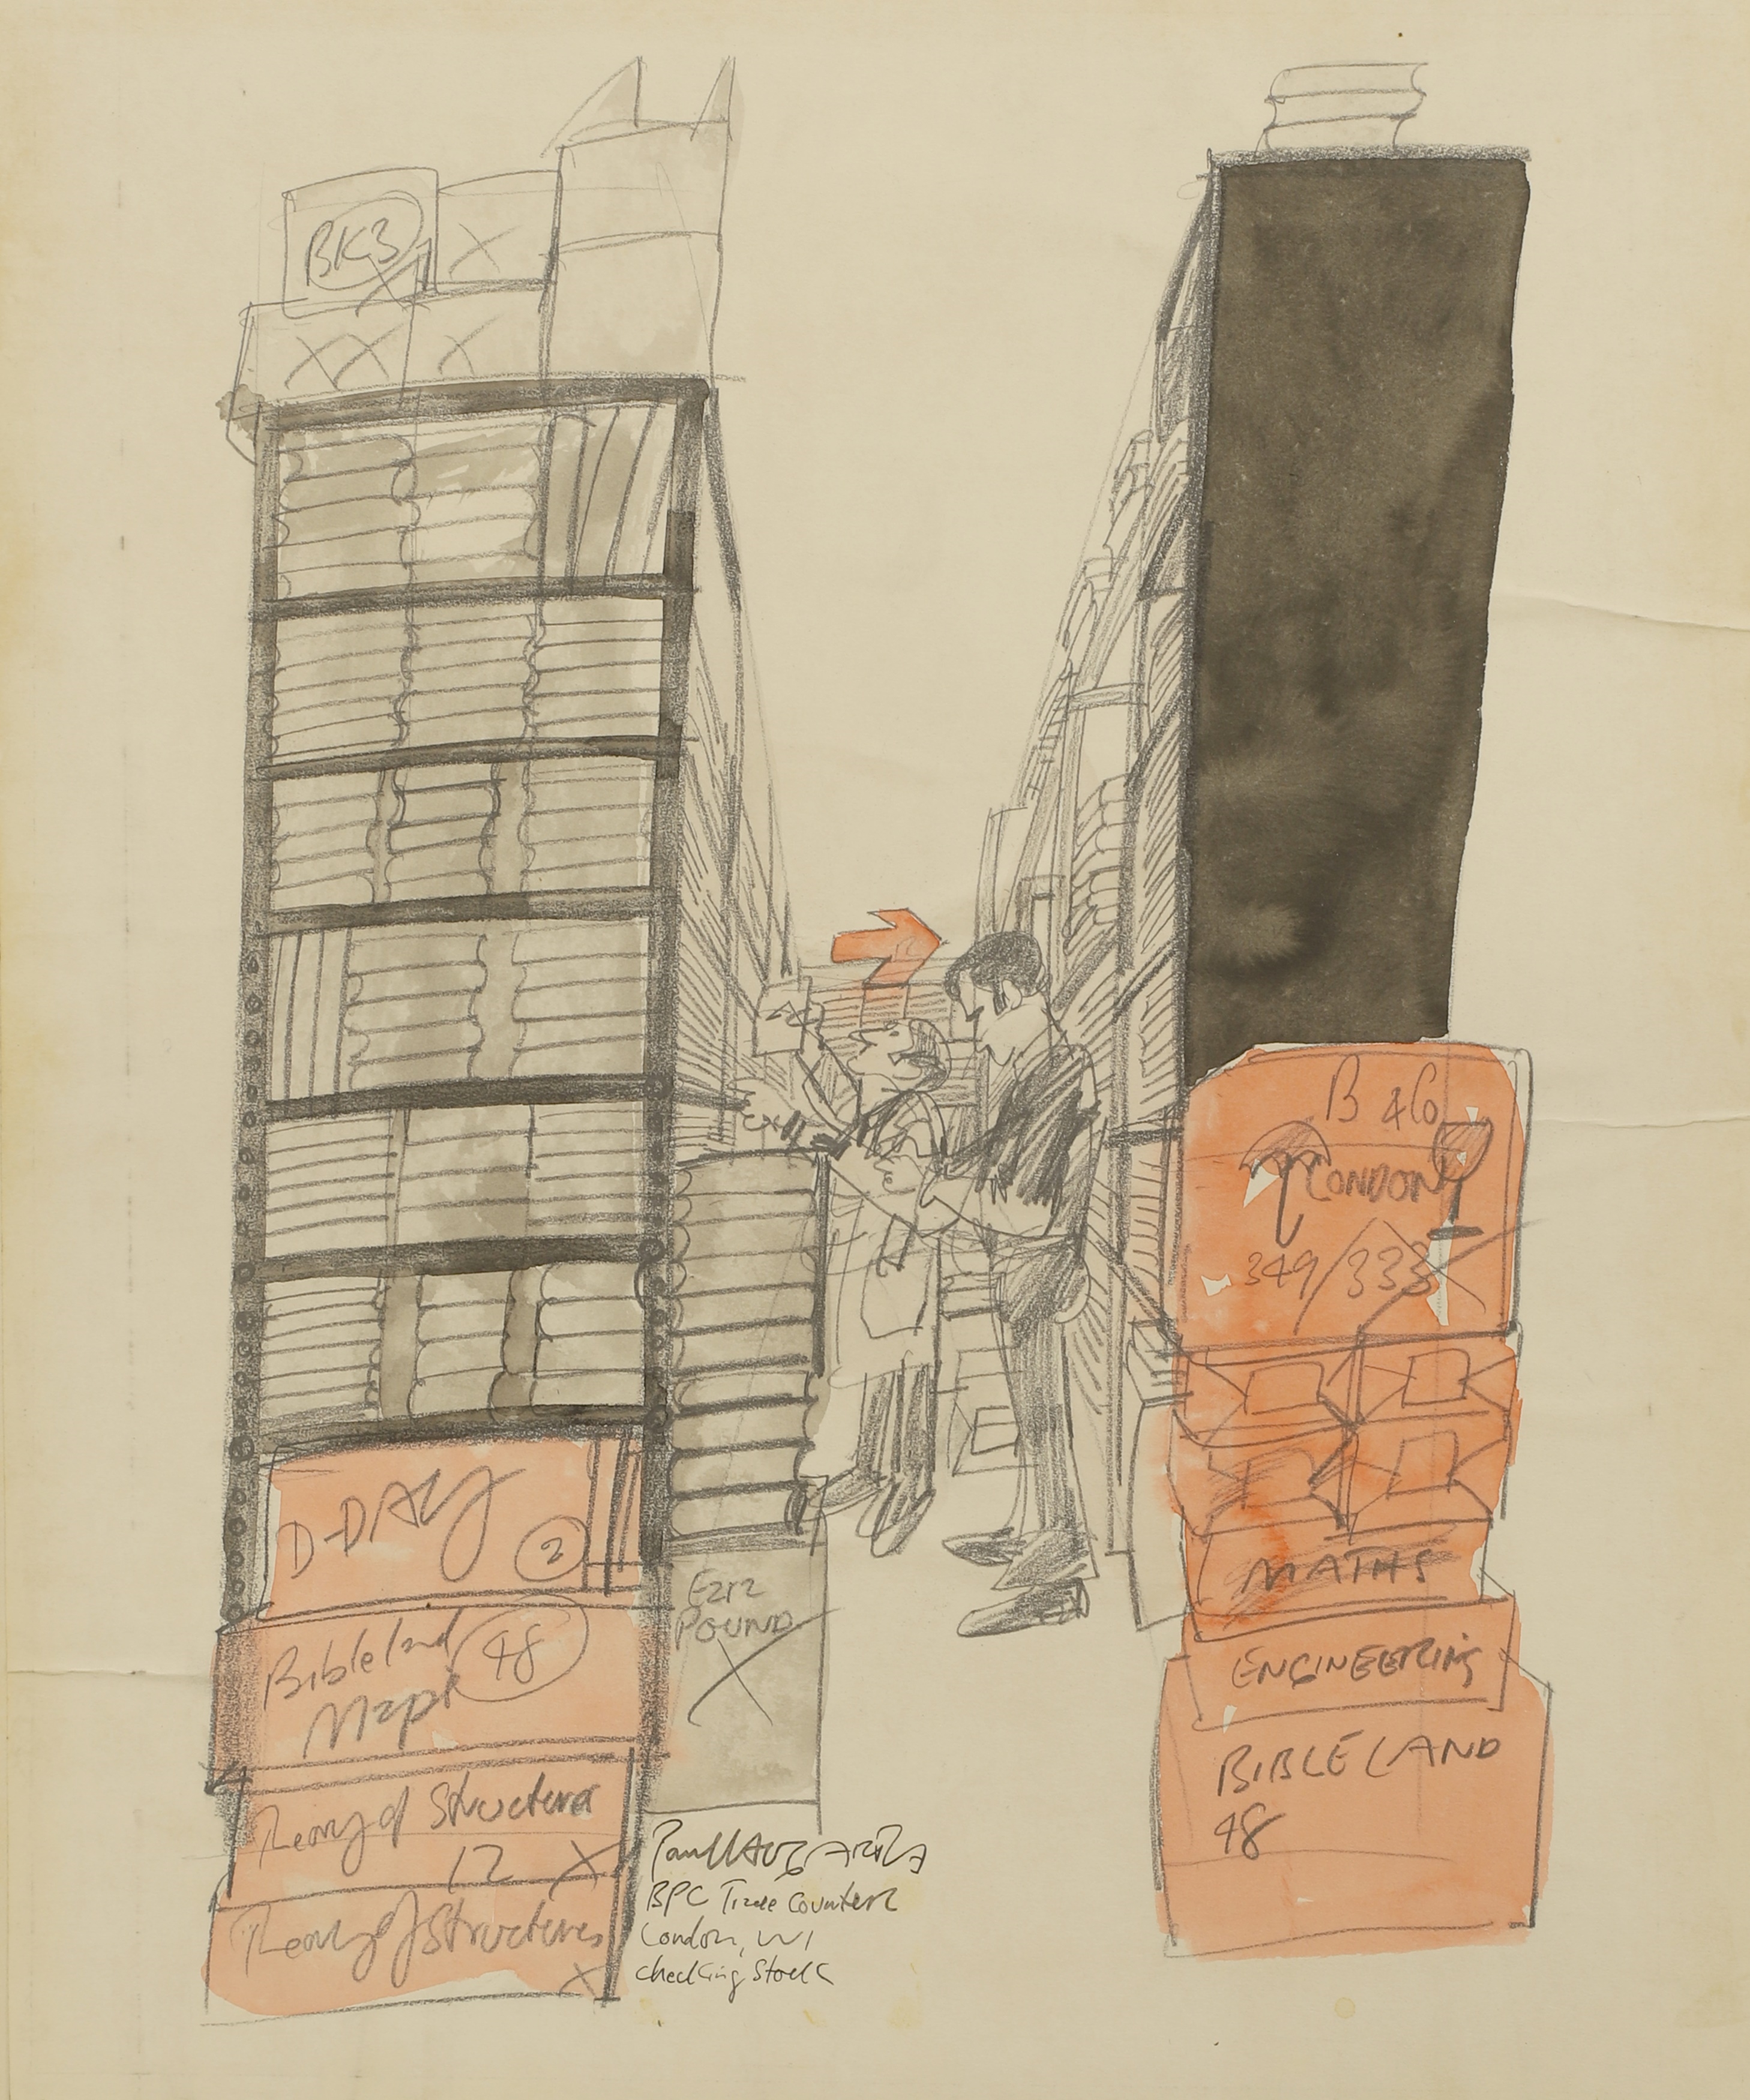 BKS
X
XX X
D-DAY
2
Bible land
Maps
48
Theory of Structures
12 X
Theory of Structures
X
Ezra
POUND
X
Paul HOGARTH
BPC Trade Counter
London, W1
checking Stock
B &Co
LONDON
349/333
MATHS
ENGINEERING
BIBLE LAND
48